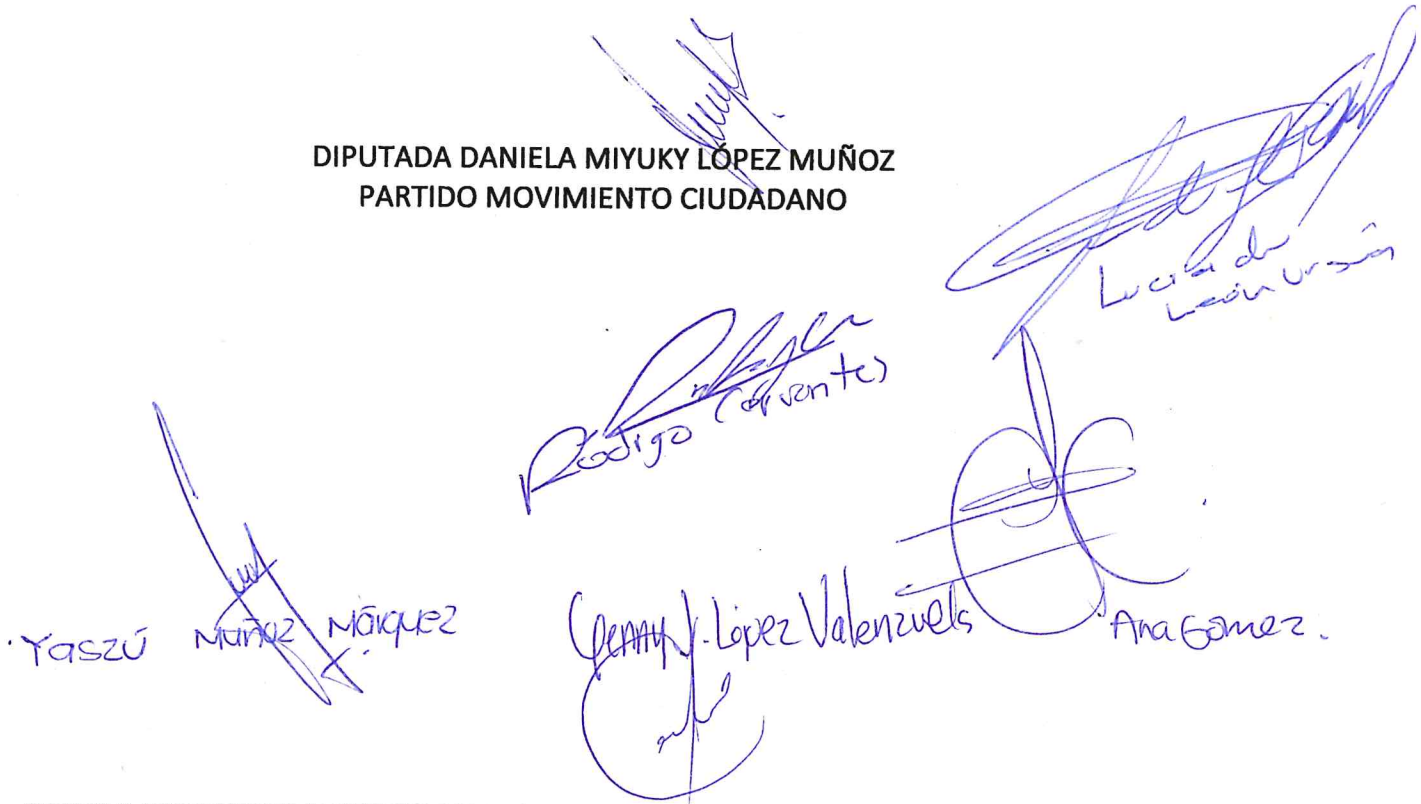 DIPUTADA DANIELA MIYUKY LÓPEZ MUÑOZ
PARTIDO MOVIMIENTO CIUDADANO
Lucila de
León
Rodrigo Cervantes
Yaszú Muñoz Márquez
López Valenzuela
Ana Gómez.